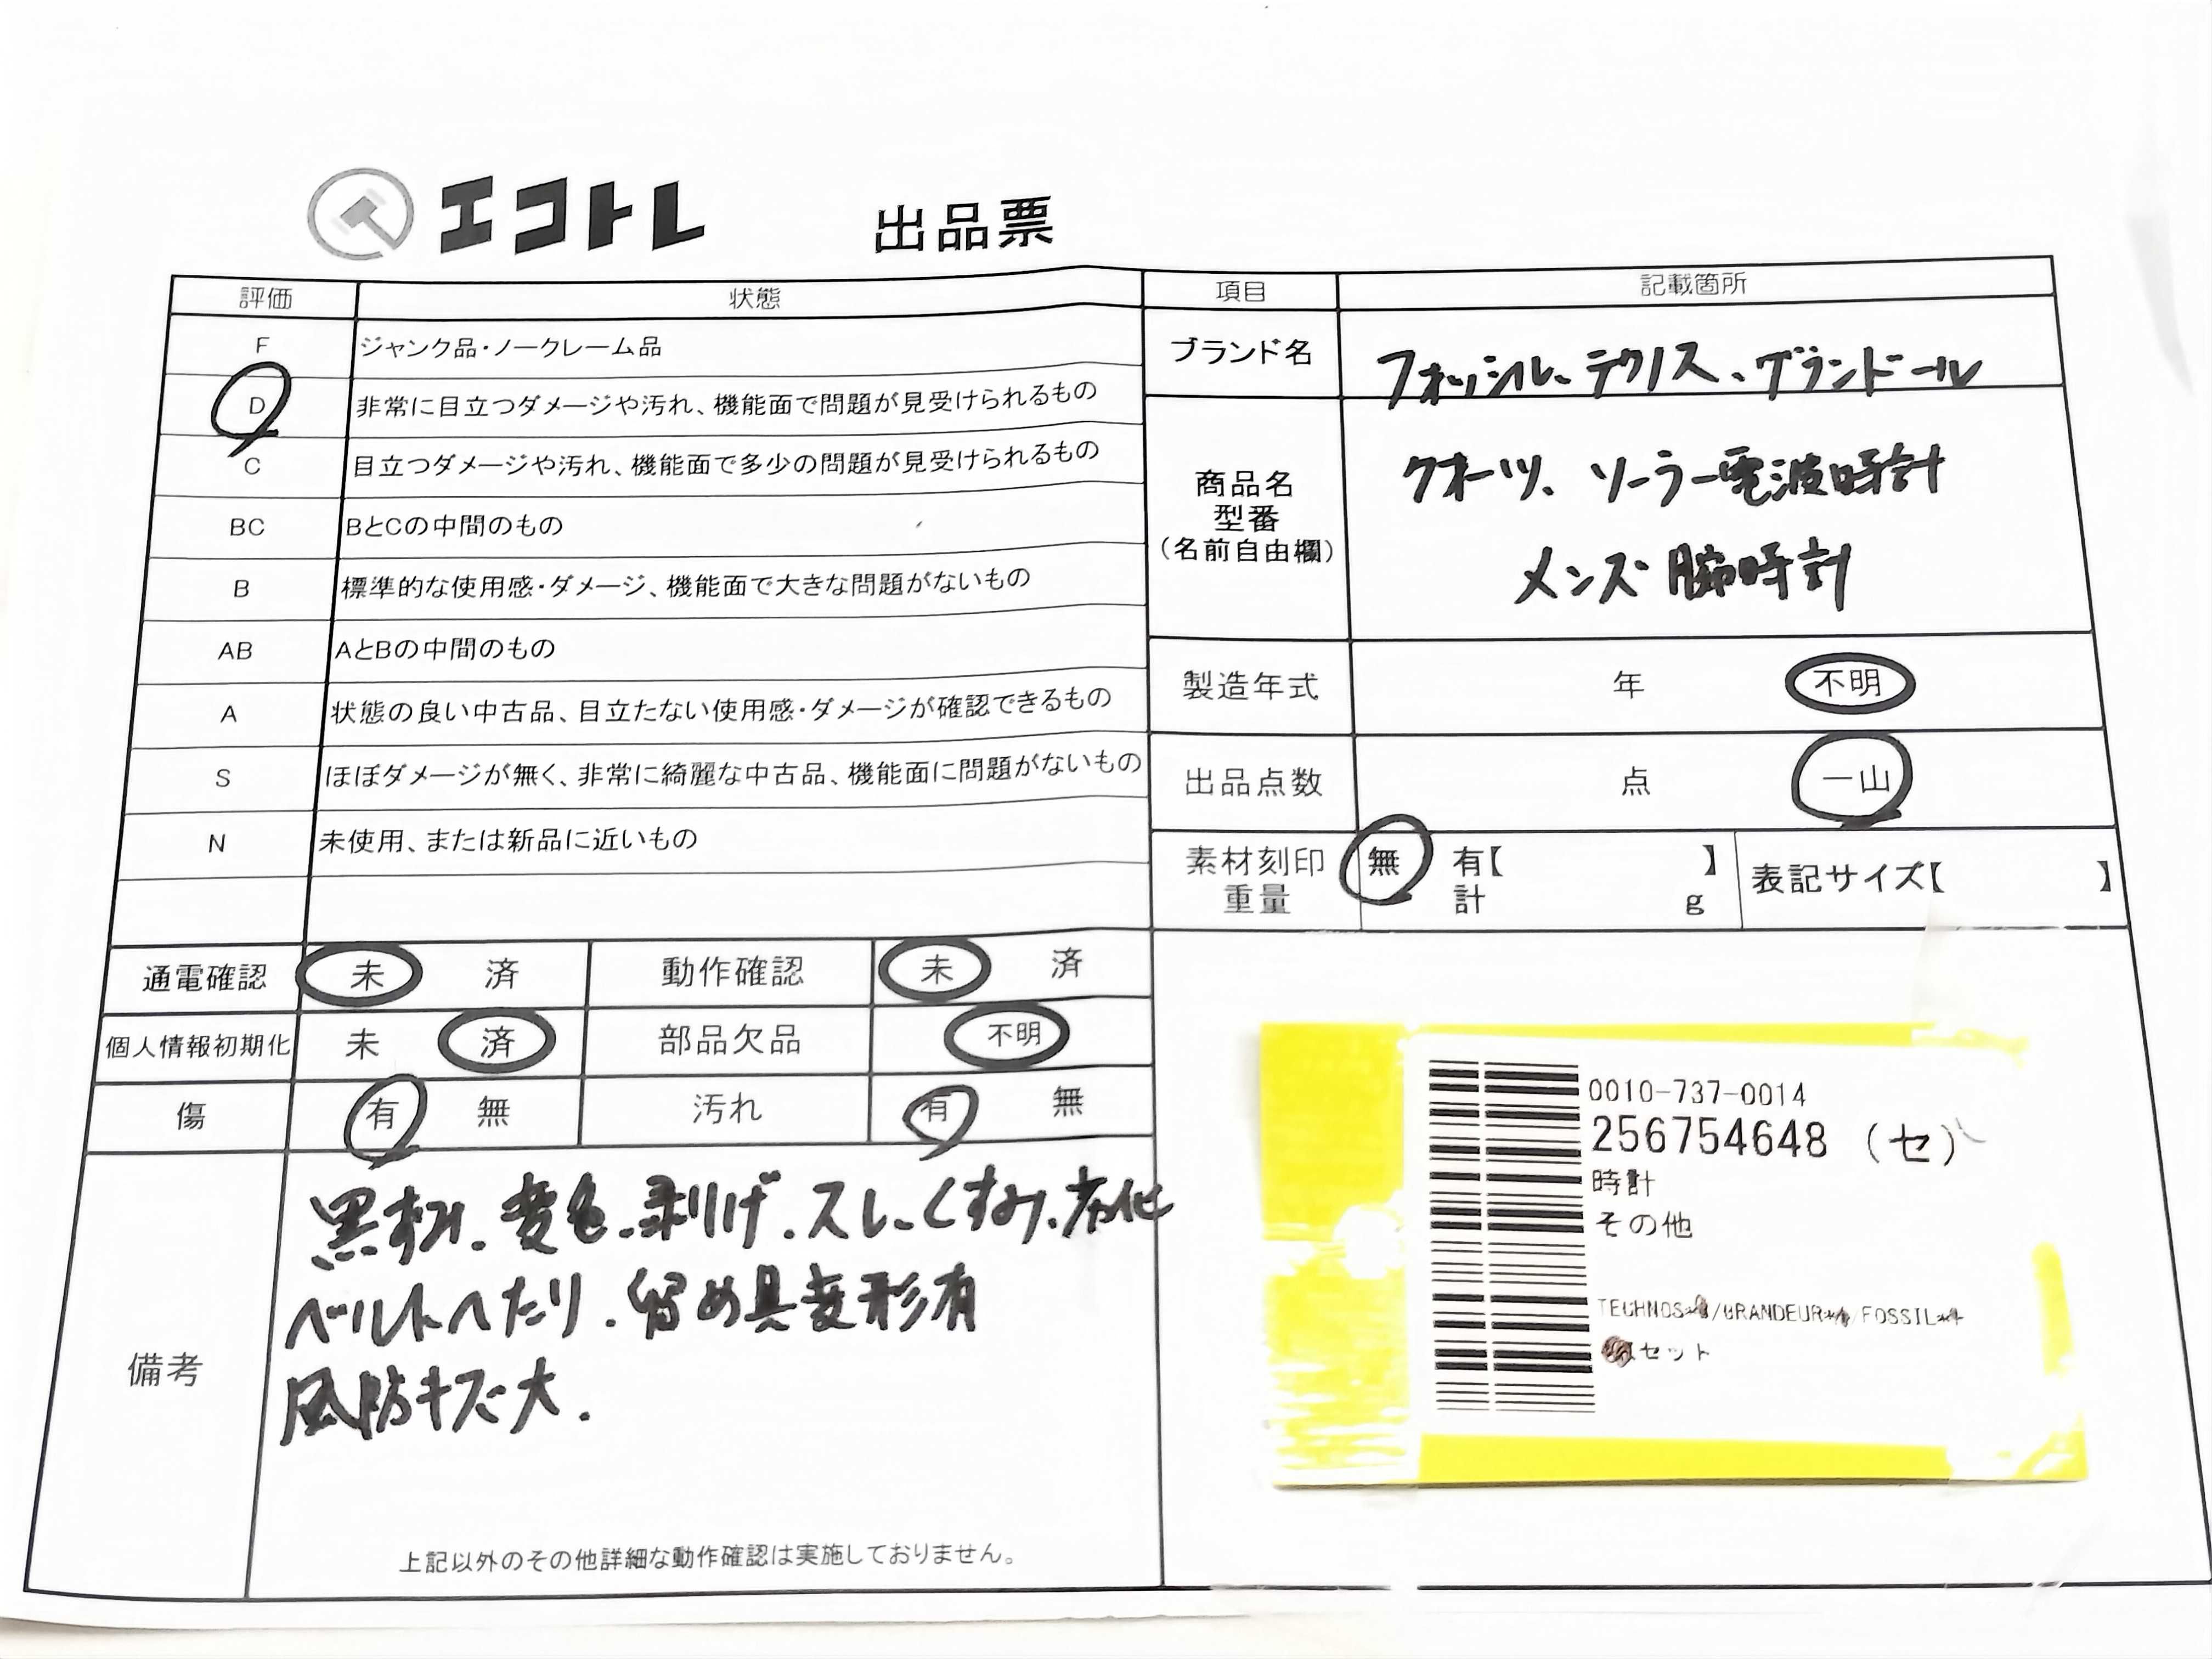 エコトレ 出品票
評価 状態
F ジャンク品・ノークレーム品
D 非常に目立つダメージや汚れ、機能面で問題が見受けられるもの
C 目立つダメージや汚れ、機能面で多少の問題が見受けられるもの
BC BとCの中間のもの
B 標準的な使用感・ダメージ、機能面で大きな問題がないもの
AB AとBの中間のもの
A 状態の良い中古品、目立たない使用感・ダメージが確認できるもの
S ほぼダメージが無く、非常に綺麗な中古品、機能面に問題がないもの
N 未使用、または新品に近いもの
通電確認 未 済 動作確認 未 済
個人情報初期化 未 済 部品欠品 不明
傷 有 無 汚れ 有 無
備考
黒ずみ、変色、剥げ、スレ、くすみ、劣化
ベルトへたり、留め具変形有
風防キズ大.
上記以外のその他詳細な動作確認は実施しておりません。
項目 記載箇所
ブランド名 フォッシル、テクノス、グランドール
商品名
型番
(名前自由欄)
クオーツ、ソーラー電波時計
メンズ腕時計
製造年式 年 不明
出品点数 点 一山
素材刻印 無 有【 】
重量 計 g
表記サイズ【 】
0010-737-0014
256754648 (セ)
時計
その他
TECHNOS /GRANDEUR /FOSSIL
セット